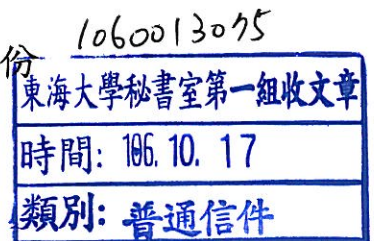 1060013075
份
東海大學秘書室第一組收文章
時間: 106. 10. 17
類別: 普通信件